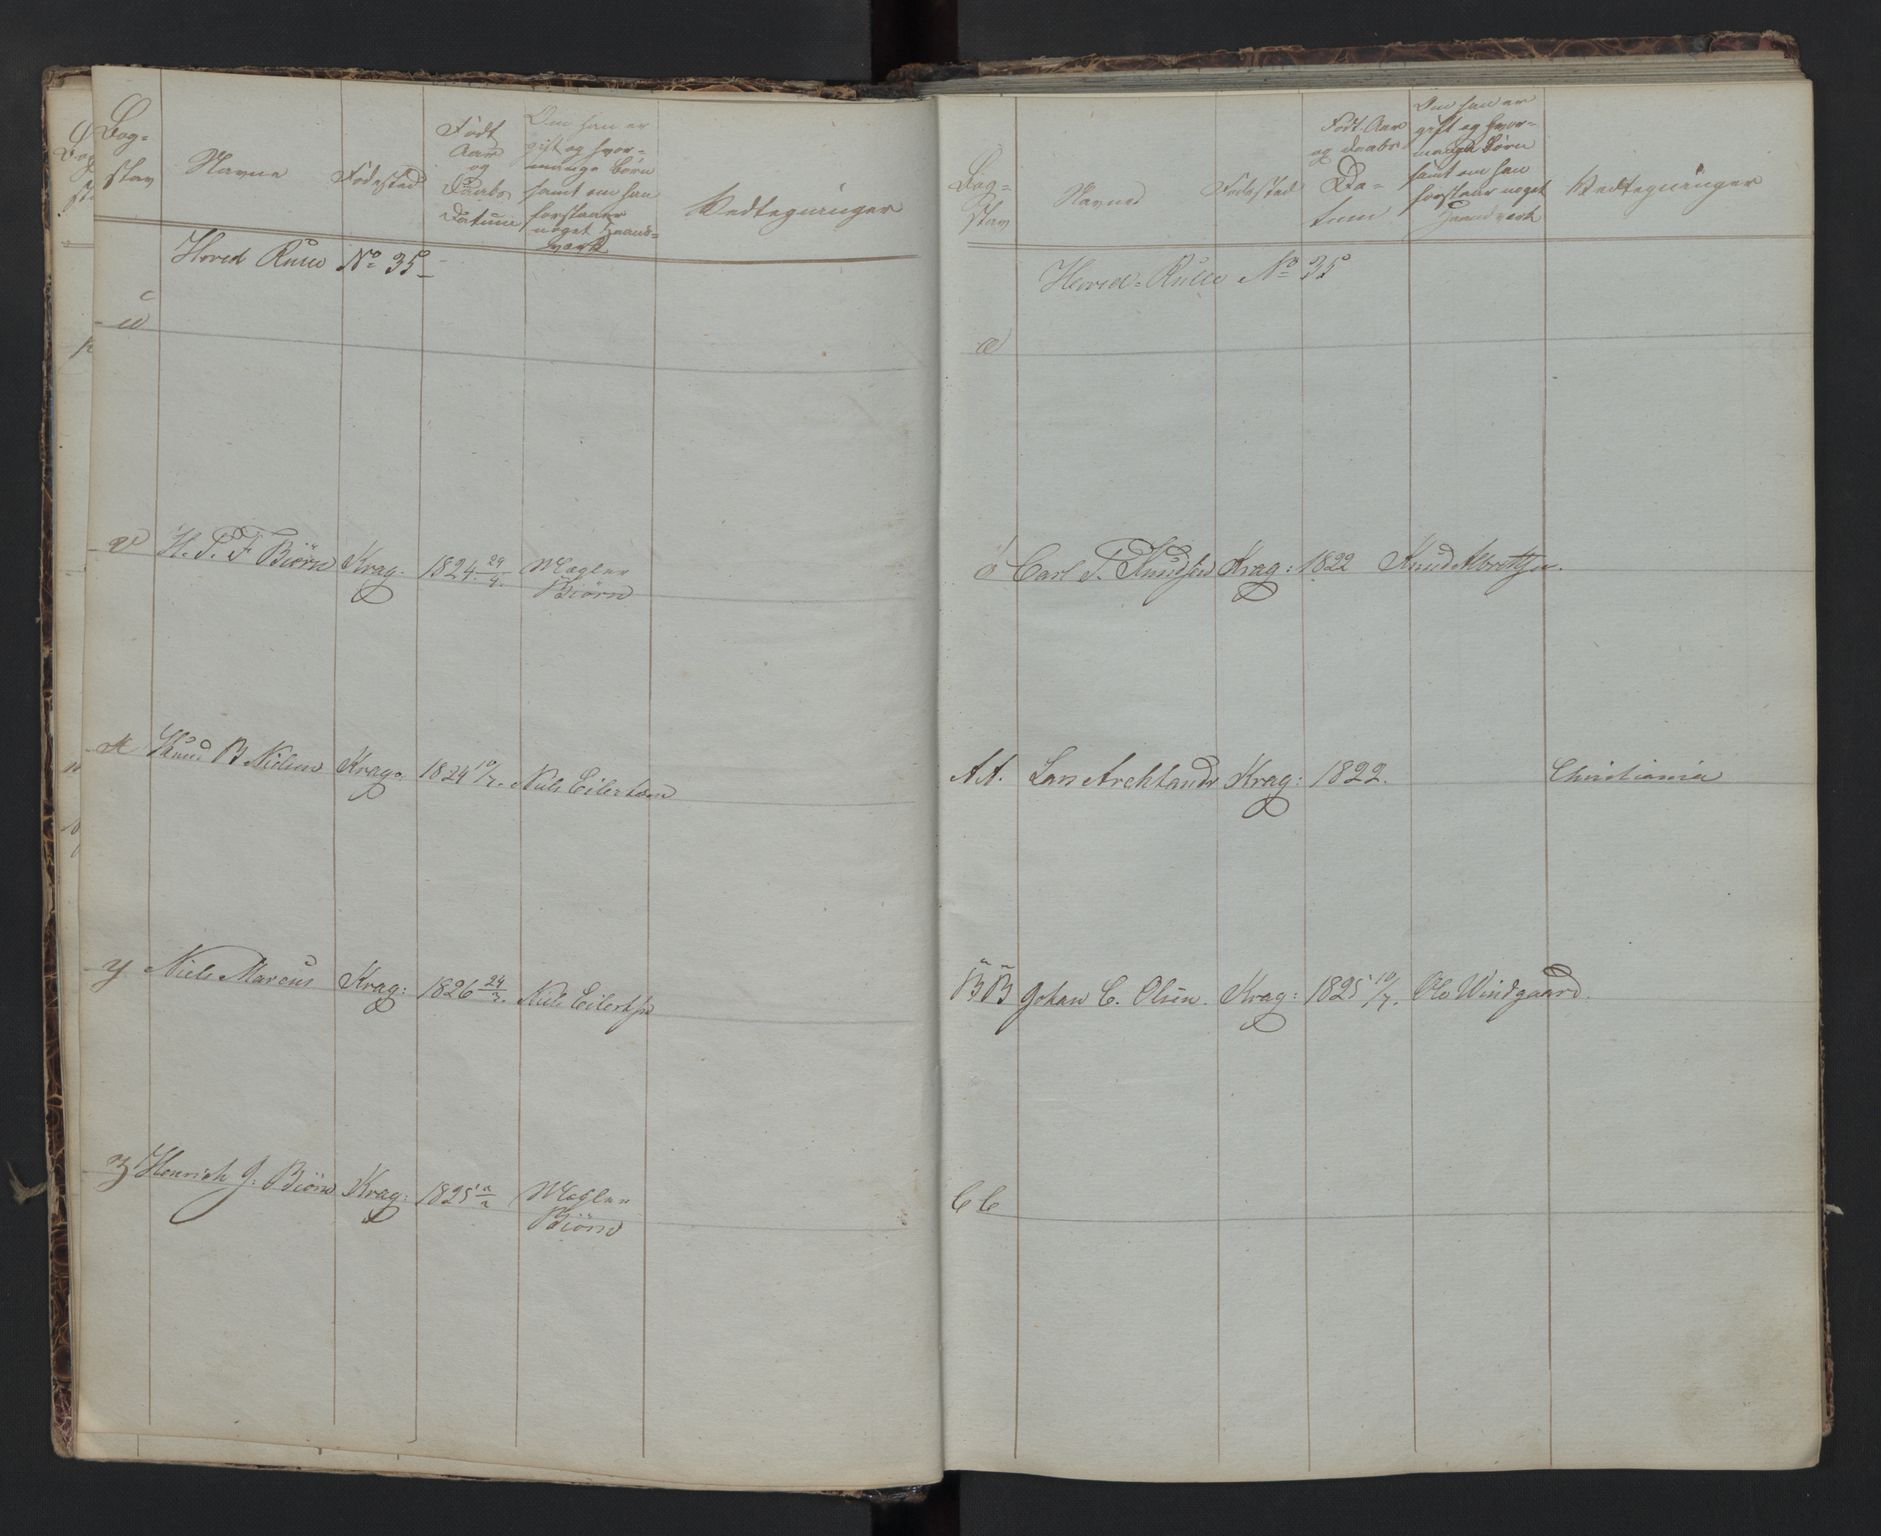 Bog-
stav
Navne
Födested
Födt
Aar
og
Daabs
Datum
Om han er
gift og hvor-
mange börn
samt om han
forstaaer
noget Haand-
værk
Vedtegninger
Hoved Rulle No 35
u
v H. T. F Biörn Krag. 1824 29/4. Mægler
Biörn
x Knud B Nielsen Krag. 1824 10/7. Niels Eilertsen
y Niels Marcus Krag: 1826 24/3. Niels Eilertsen
z Henrich J. Biörn Krag: 1825 Mægler
Biörn
Bog-
stav
Navne
Födested
Födt Aar
og daabs
Da-
tum
Om han er
gift og hvor-
mange börn
samt om han
forstaar noget
Haandverk
Vedtegninger
Hoved-Rulle No 35
æ
ö Carl T. Knudsen Krag: 1822 Knud Albretsen.
AA. Lars Krag: 1822. Christiania
BB Johan C. Olsen. Krag: 1825 10/7. Ole Windgaard.
CC